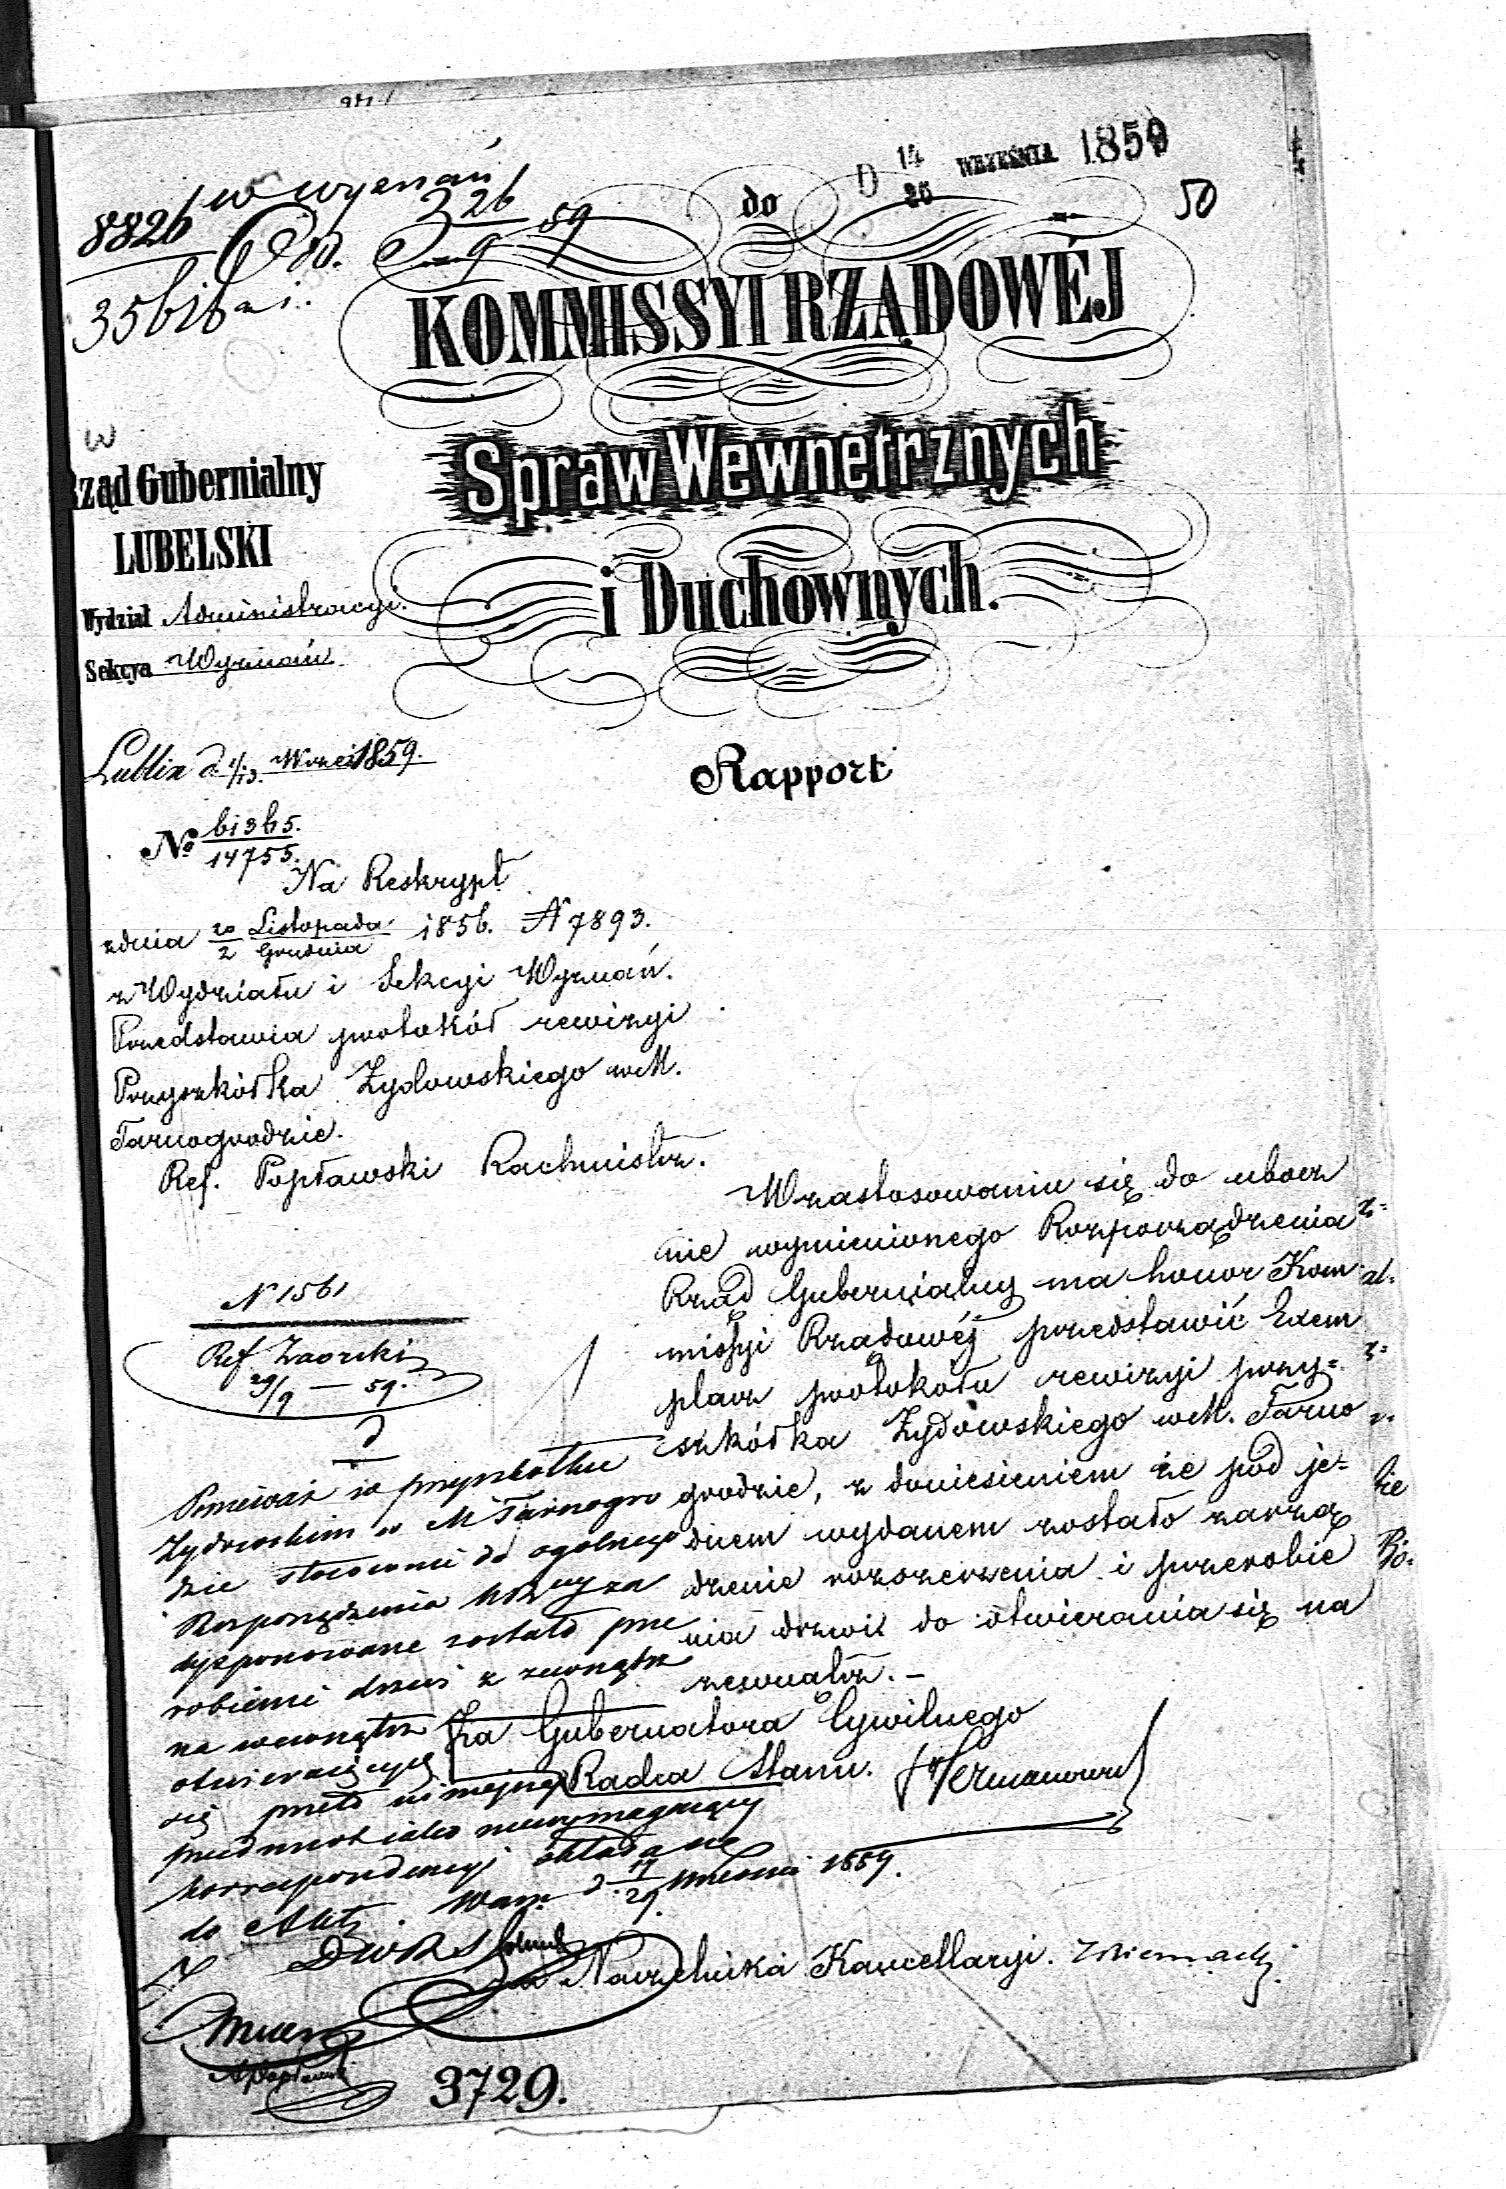 D 14/26 WRZEŚNIA 1859
50
w wyznań
8826
35
Od. 26/9 59
do
KOMMISSYI RZĄDOWÉJ
Spraw Wewnetrznych
i Duchownych.
w
Rząd Gubernialny
LUBELSKI
Wydział Administracyi.
Sekcya Wyznań
Lublin d. 1/13. Wrześ 1859.
Rapport
No 61365./14755.
Na Reskrypt
z dnia 20/2 Listopada/Grudnia 1856. N 7893.
z Wydziału i Sekcyi Wyznań.
Przedstawia protokół rewizyi
Przyszkółka Żydowskiego w M.
Tarnogrodzie.
Ref. Popławski Rachmistrz.
W zastosowaniu się do ubocz
nie wymienionego Rozporządzenia
Rząd Gubernialny ma honor Kom
missyi Rządowéj przedstawić Exem
plarz protokółu rewizyi przy=
szkółka Żydowskiego w M. Tarno
grodzie, z doniesieniem że pod je=
dnem wydanem zostało zarzą
dzenie rozszerzenia i przerobie
nia drzwi do otwierania się na
zewnątrz. –
Za Gubernatora Cywilnego
Radca Stanu.
Naczelnika Kancellaryi.
N 1561
Ref Zaorski
29/9 – 59.
Ponieważ w przyszkółku
Żydowskim w M Tarnogro
dzie stosownie do ogólnego
Rozporządzenia
dysponowane zostało prze
robienie drzwi z zewnątrz
na wewnątrz
otwierających
się przeto niniejszy
przedmiot jako niewymagający
korrespondencyi składa się
do Akt. Warz. d. 17/29 Września 1859.
3729.